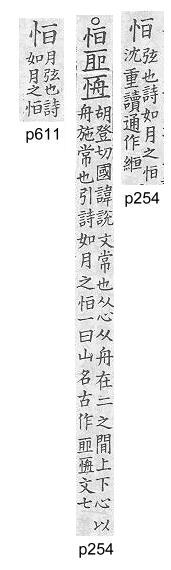 恒
弦也詩如月之恒
沈重讀通作
p254
○恒
胡登切國諱說文常也从心从舟在二之閒上下心以
舟施常也引詩如月之恒一曰山名古作文七
p254
恒
月弦也詩
如月之恒
p611